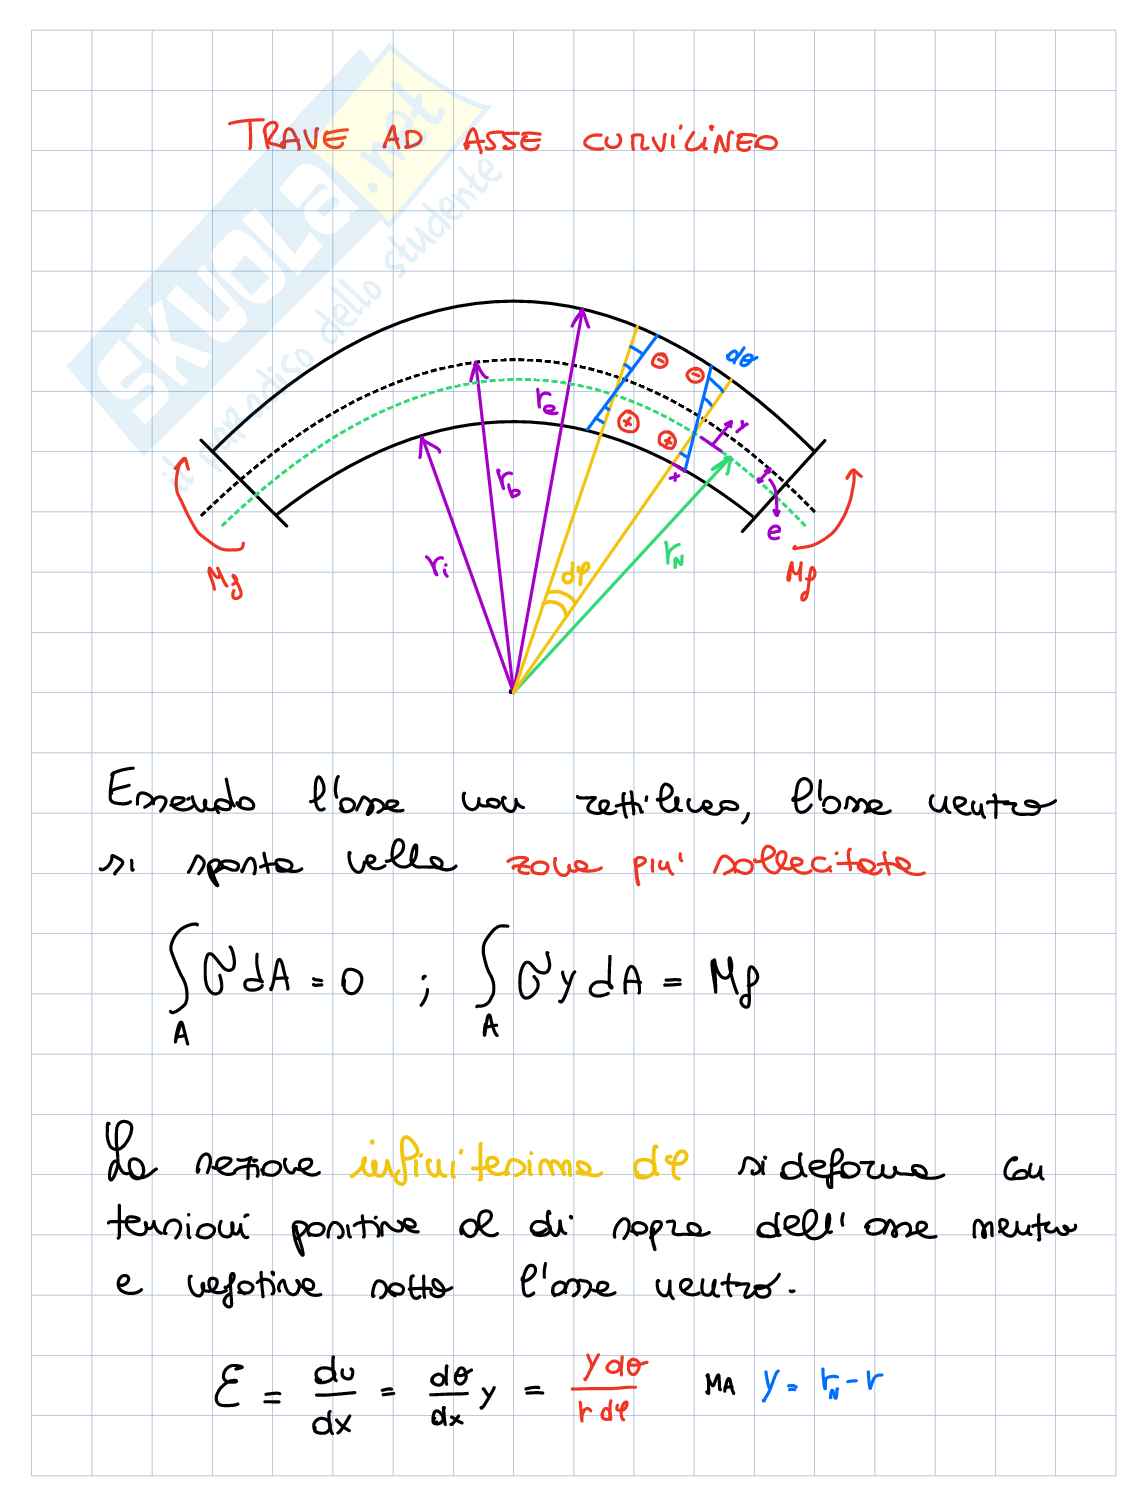 TRAVE AD ASSE CURVILINEO
SKUOLA.net
il paradiso dello studente
dθ
re
y
rb
x
e
ri
rN
dφ
Mf
Mf
Essendo l'asse non rettilineo, l'asse neutro
si sposta nella zona piu' sollecitata
∫A σ dA = 0 ; ∫A σ y dA = Mf
La sezione infinitesima dφ si deforma con
tensioni positive al di sopra dell'asse neutro
e negative sotto l'asse neutro.
ε = du/dx = dθ/dx y = y dθ/r dφ MA y = rN - r